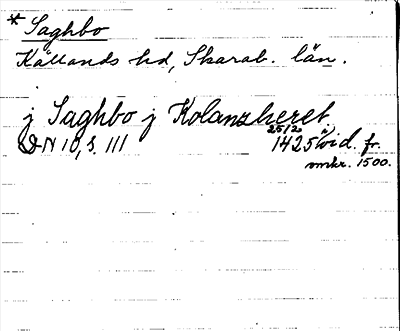 * Saghbo
Kållands hd, Skarab. län.
j Saghbo j Kolanzheret
DN 10, s. 111 25/2 1425 wid. fr.
omkr. 1500.